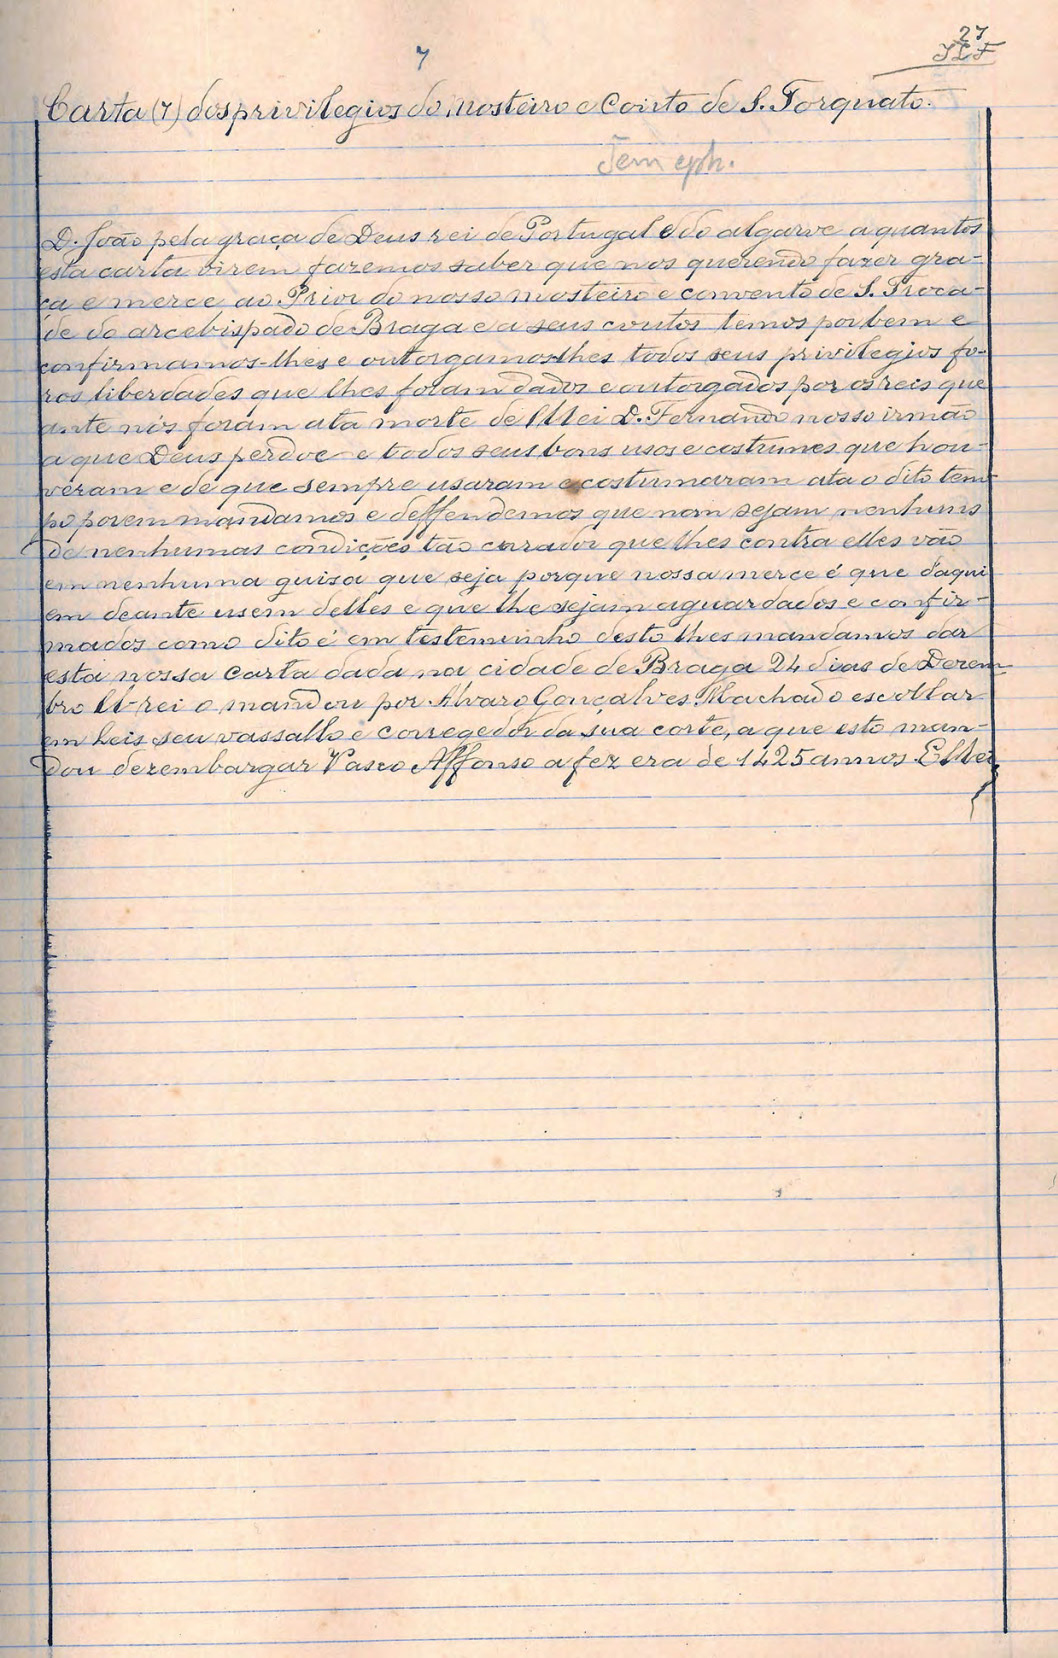 27
7
Carta (7) dos privilegios do Mosteiro e Coirto de S. Torquato.
Tem eph.
D. João pela graça de Deus rei de Portugal e do algarve a quantos
esta carta virem fazemos saber que nos querendo fazer gra-
ça e merce ao Prior do nosso mosteiro e convento de S. Troca-
de do arcebispado de Braga e a seus coutos temos por bem e
confirmamos-lhes e outorgamos-lhes todos seus privilegios fo-
ros liberdades que lhes foram dados e outorgados por os reis que
ante nós foram ata morte de El lei D. Fernando nosso irmão
a que Deus perdoe e todos seus bons usos e costumes que hou-
veram e de que sempre usaram e costumaram ata o dito tem
po porem mandamos e deffendemos que nom sejam nenhuns
de nenhumas condições tão que lhes contra elles vão
em nenhuma guisa que seja porque nossa merce é que d'aqui
em deante usem delles e que lhe sejam aguardados e confir-
mados como dito é em testeminho desto lhes mandamos dar
esta nossa carta dada na cidade de Braga 24 dias de Dezem
bro El-rei o mandou por Alvaro Gonçalves Machado escollar
em leis seu vassallo e corregedor da sua corte, a que esto man-
dou dezembargar Vasco Affonso a fez era de 1425 annos. El Rei